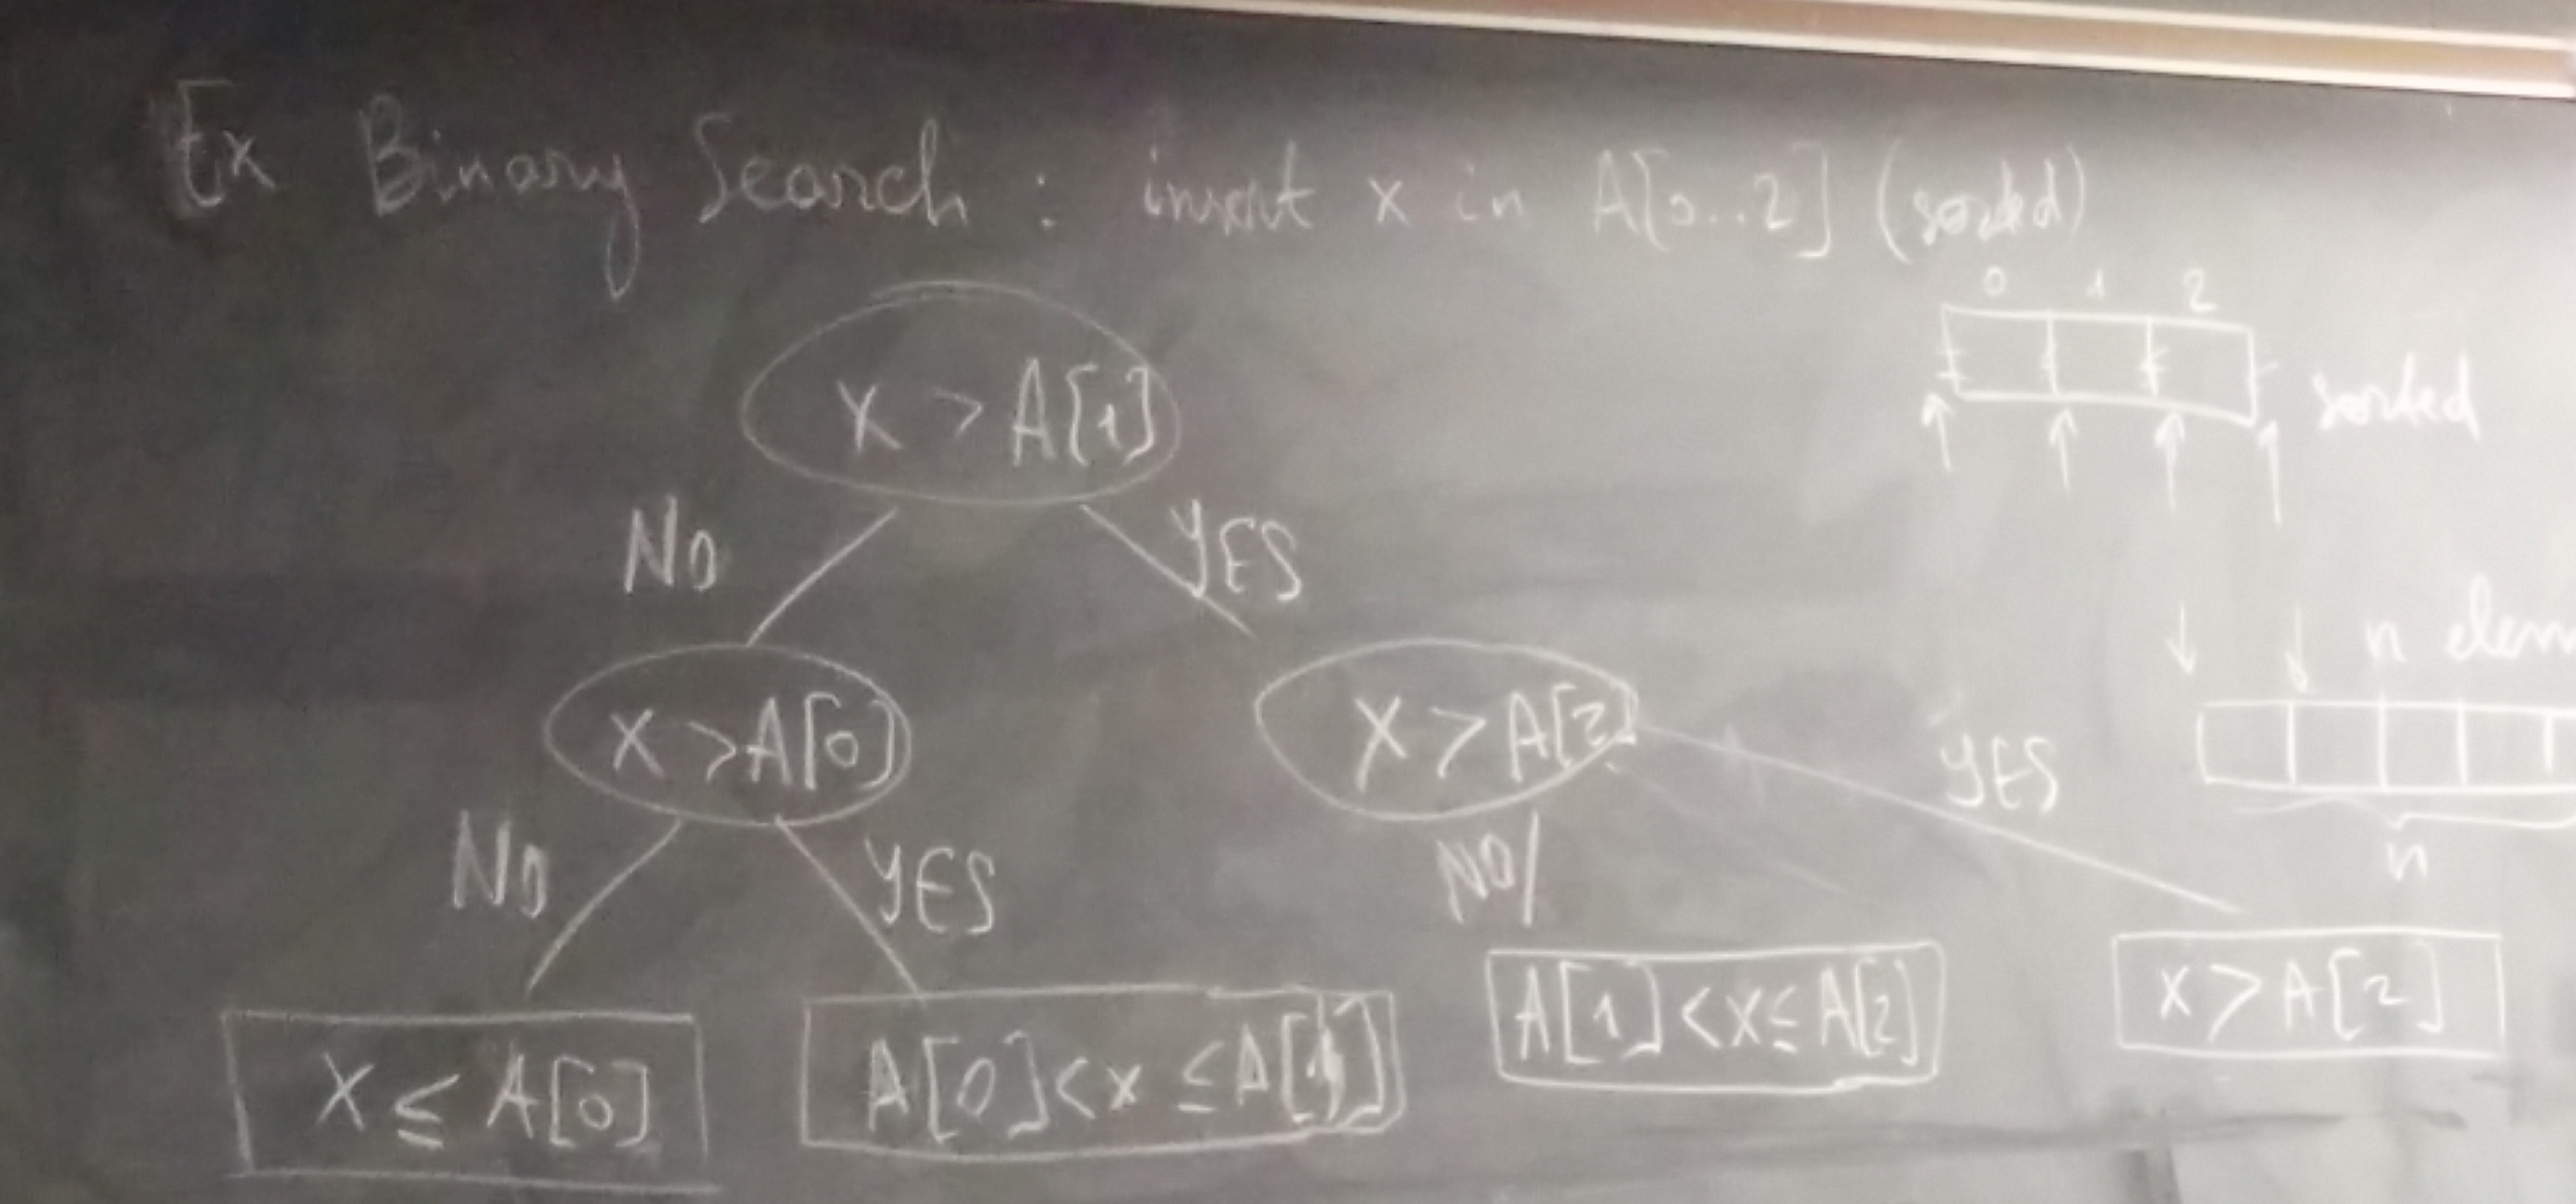 Ex Binary Search : insert x in A[0..2] (sorted)
0 1 2
x > A[1]
sorted
NO YES
n elem
x > A[0]
x > A[2]
YES
n
NO YES
NO
x ≤ A[0]
A[0] < x ≤ A[1]
A[1] < x ≤ A[2]
x > A[2]